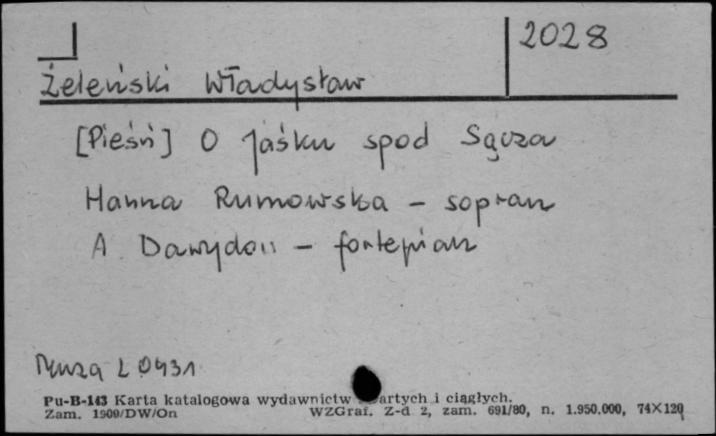 2028
Żeleński Władysław
[Pieśń] O Jaśku spod Sącza
Hanna Rumowska - sopran
A. Dawydow - fortepian
Muza L 0431
Pu-B-143 Karta katalogowa wydawnictw artych i ciągłych.
Zam. 1909/DW/On WZGraf. Z-d 2, zam. 691/80, n. 1.950.000, 74X120